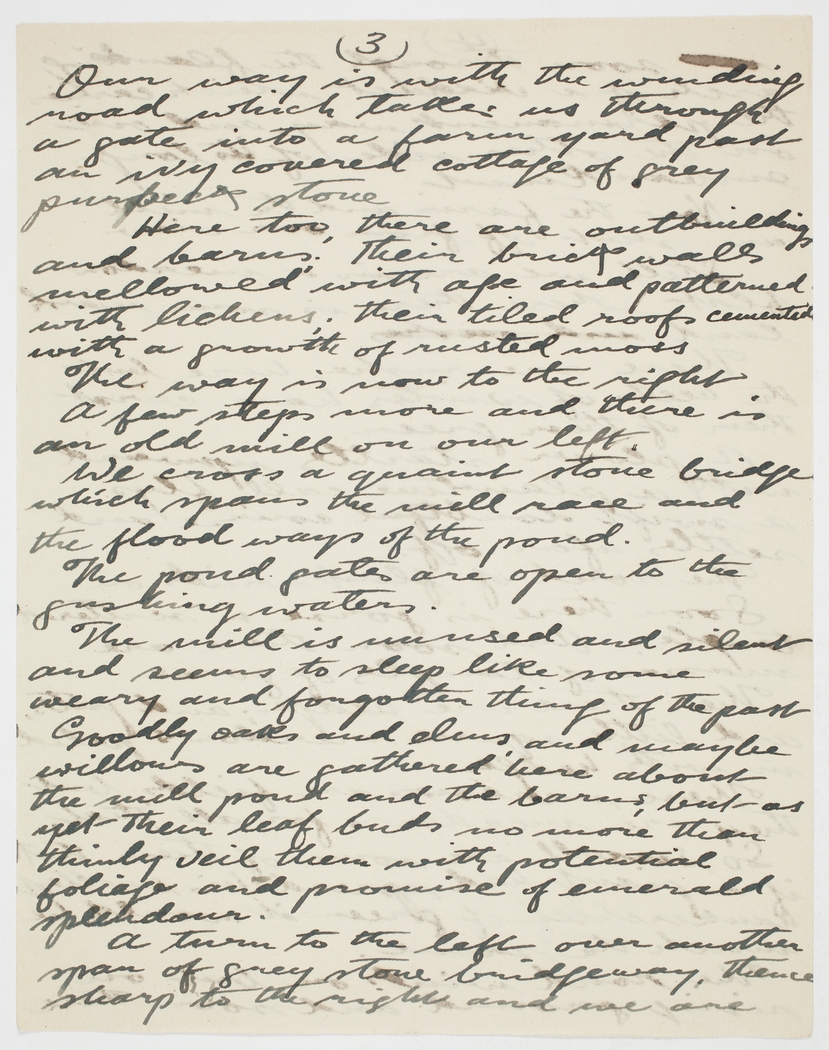 (3)
Our way is with the winding
road which takes us through
a gate into a farm yard past
an ivy covered cottage of grey
purbeck stone
Here too, there are outbuildings
and barns. Their brick walls
mellowed with age and patterned
with lichens; their tiled roofs cemented
with a growth of rusted moss
The way is now to the right
A few steps more and there is
an old mill on our left.
We cross a quaint stone bridge
which spans the mill race and
the flood ways of the pond.
The pond gates are open to the
gushing waters.
The mill is unused and silent
and seems to sleep like some
weary and forgotten thing of the past
Goodly oaks and elms, and maybe
willows are gathered here about
the mill pond and the barns, but as
yet their leaf buds no more than
thinly veil them with potential
foliage and promise of emerald
splendour.
A turn to the left over another
span of grey stone bridgeway, thence
sharp to the right and we are